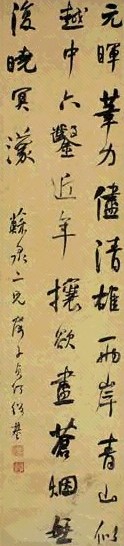 元暉筆力儘清雄兩岸青山似
越中六鑿近年攘欲盡蒼烟無
復曉冥濛
二兄 子貞何紹基